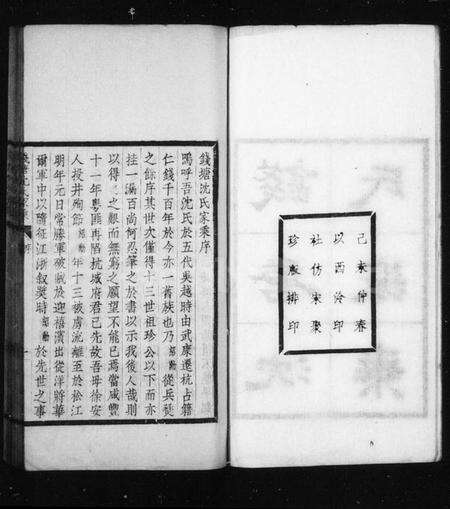 己未仲春
以西泠印
社仿宋聚
珍版排印
錢塘沈氏家乘序
嗚呼吾沈氏於五代吳越時由武康遷杭占籍
仁錢千百年於今亦一舊族也乃 從兵燹
之餘序其世次僅得十三世祖珍公以下而亦
挂一漏百尚何忍筆之於書以示我後人哉則
以得 之艱而無窮之願望不能已焉當咸豐
十一年粵匪再陷杭城府君已先故吾母徐安
人投井殉節 年十三被虜流離至於松江
明年元日常勝軍破賊於迎禧濱出從洋將華
爾軍中以隨征江浙叙獎時 於先世之事